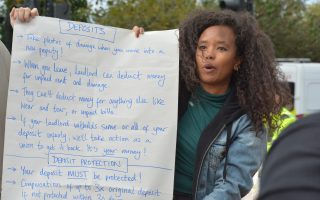 DEPOSITS
→ Take photos of damage when you move into a
new property!
→ When you leave, landlord can deduct money
for unpaid rent and damage.
→ They can't deduct money for anything else like
wear and tear, or unpaid bills.
→ If your landlord withholds some or all of your
deposit unfairly we'll take action as a
union to get it back. It's your money!
DEPOSIT PROTECTION
→ Your deposit MUST be protected!
→ Compensation of up to 3x original deposit
if not protected within